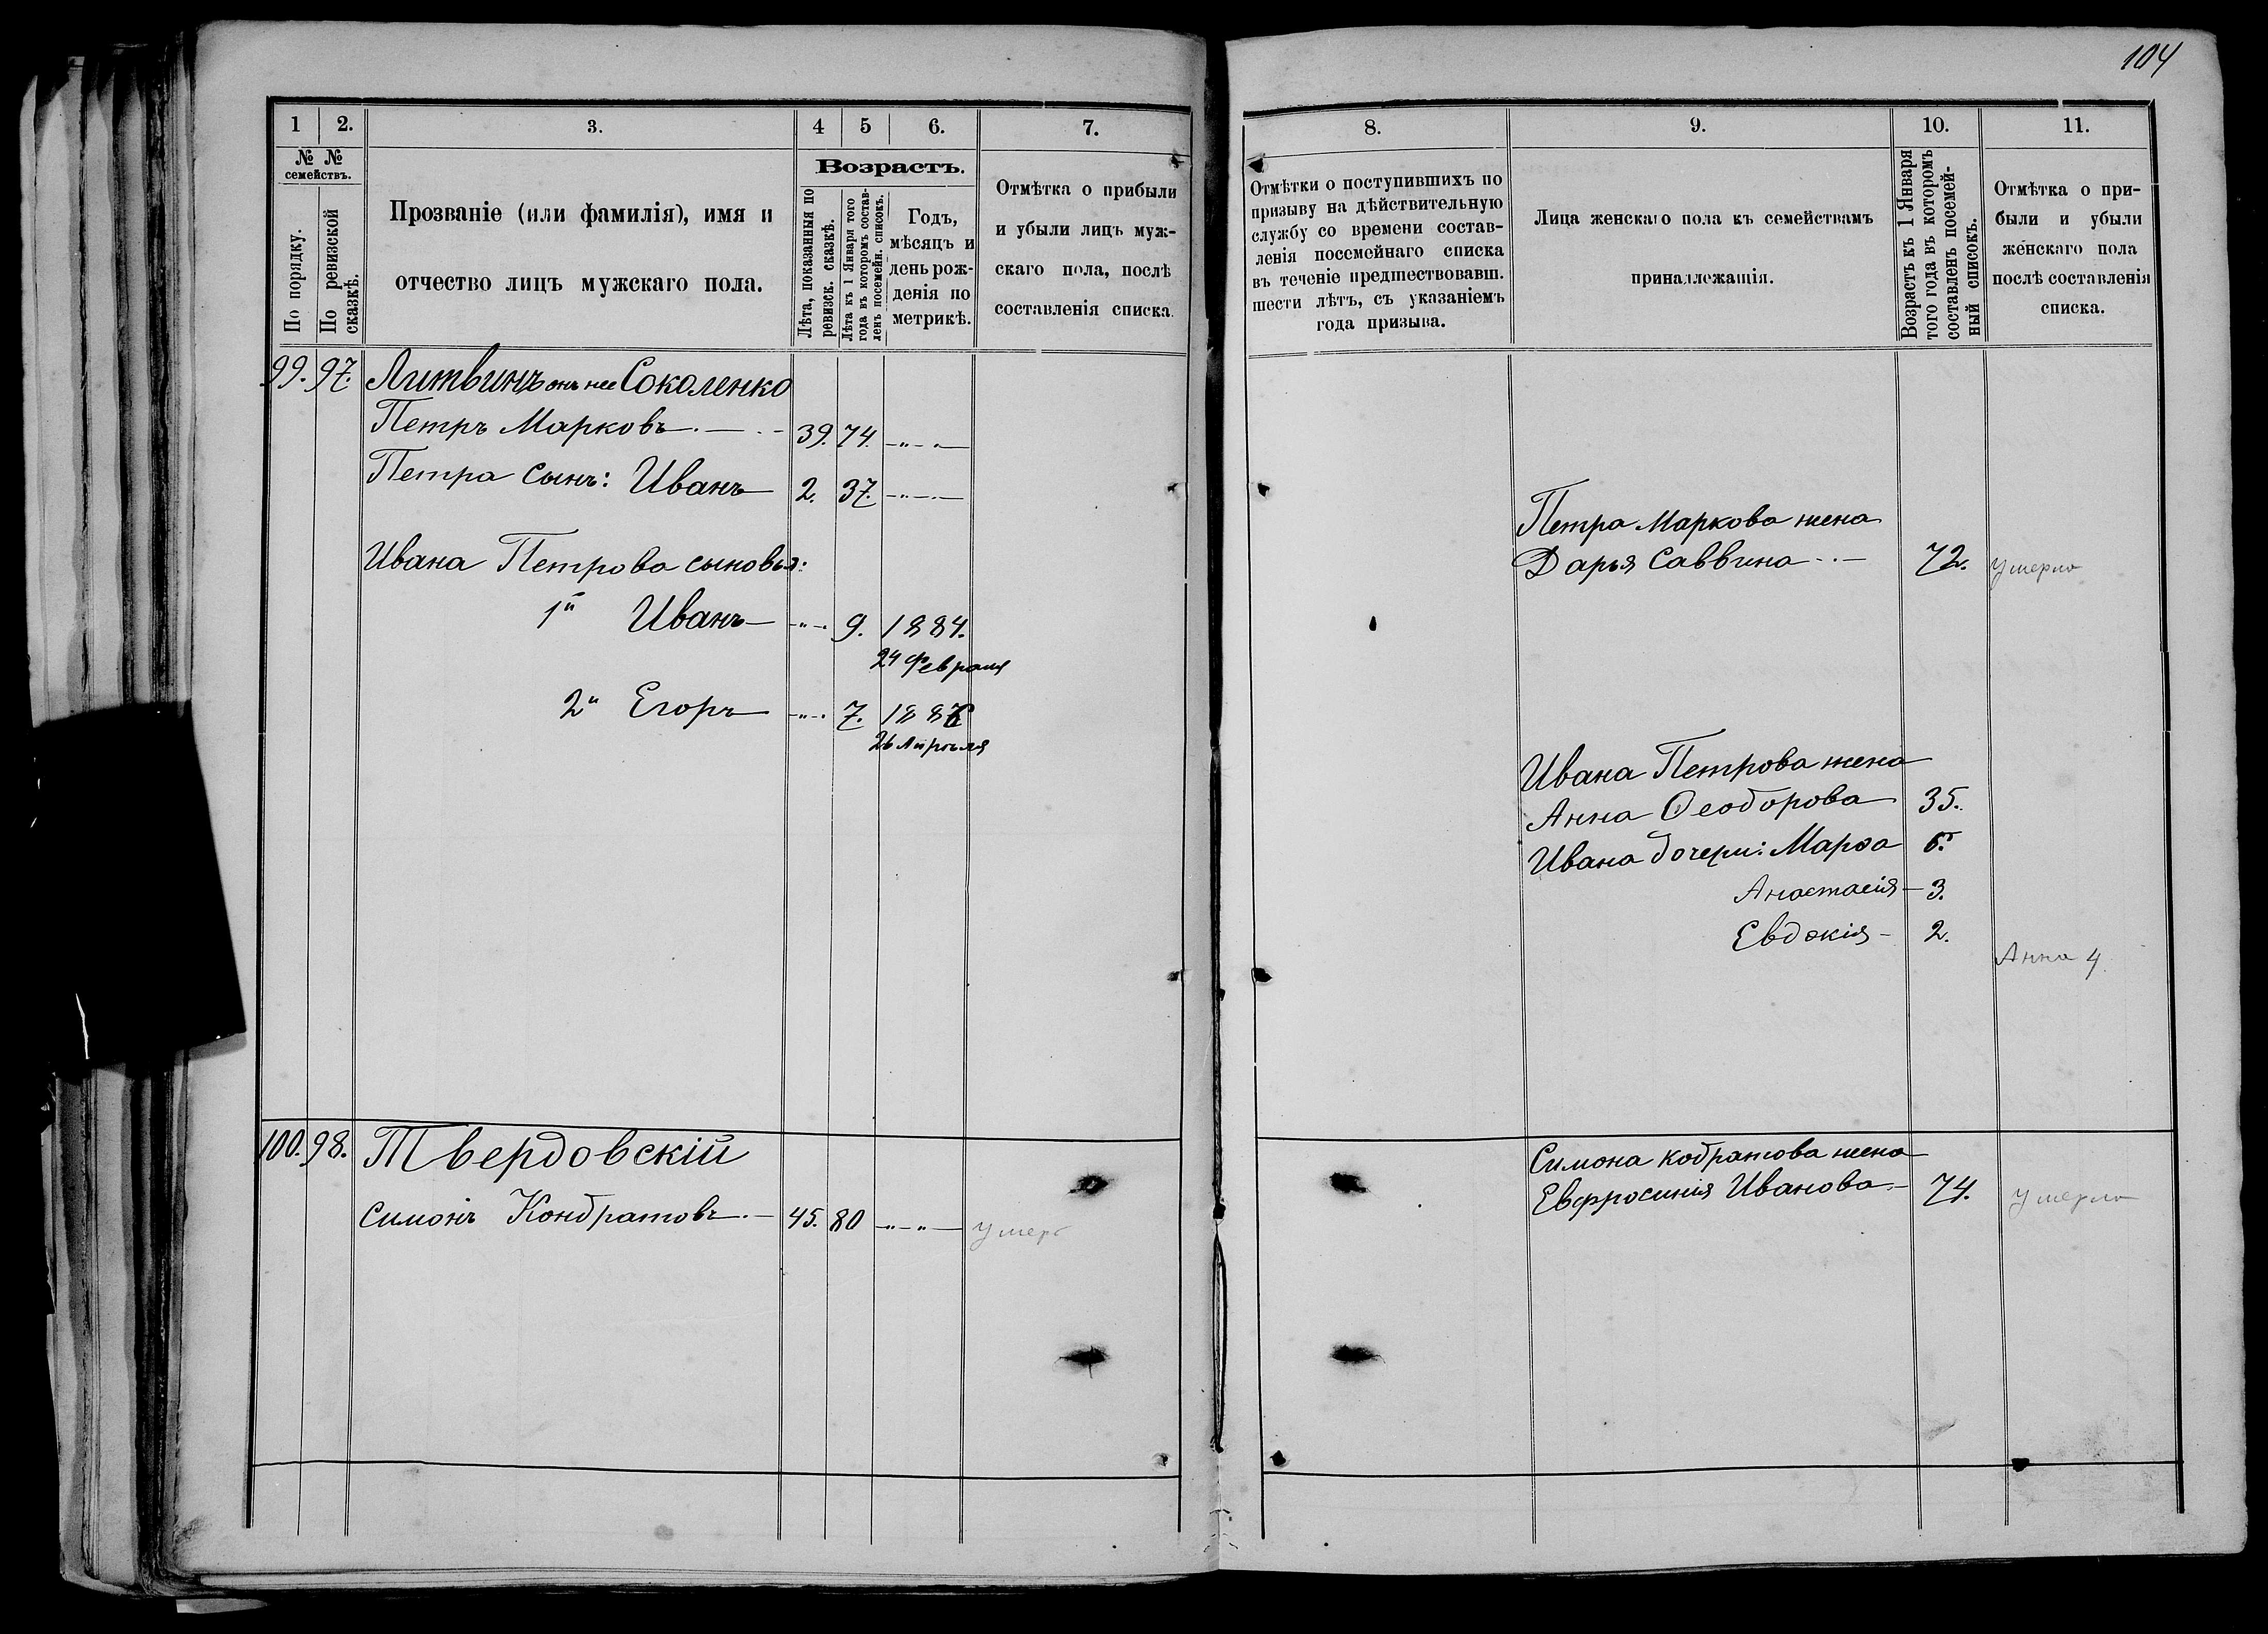 104
1
2.
3.
4
5
6.
7.
№ №
семействъ.
По порядку.
По ревизской
сказкѣ.
Прозваніе (или фамилія), имя и
отчество лицъ мужскаго пола.
Возрастъ.
Лѣта, показанныя по
ревизск. сказкѣ.
Лѣта къ 1 Января того
года въ которомъ состав-
ленъ посемейн. списокъ.
Годъ,
мѣсяцъ и
день рож-
денія по
метрикѣ.
Отмѣтка о прибыли
и убыли лицъ муж-
скаго пола, послѣ
составленія списка.
99. 97. Литвинъ онъ же Соколенко
Петръ Марковъ. — . - 39. 74. —"—"—
Петра сынъ: Иванъ — 2. 37. —"—"—
Ивана Петрова сыновья:
1й Иванъ — -"-. 9. 1884.
24 Февраля
2й Егоръ — -"-. 7. 1886
26 Апрѣля
100. 98. Твердовскій
Симонъ Кондратовъ. — 45. 80 —"—"— умеръ
8.
9.
10.
11.
Отмѣтки о поступившихъ по
призыву на дѣйствительную
службу со времени состав-
ленія посемейнаго списка
въ теченіе предшествовавш.
шести лѣтъ, съ указаніемъ
года призыва.
Лица женскаго пола къ семействамъ
принадлежащія.
Возрастъ къ 1 Января
того года въ которомъ
составленъ посемей-
ный списокъ.
Отмѣтка о при-
были и убыли
женскаго пола
послѣ составленія
списка.
Петра Маркова жена
Дарья Саввина - . — 72. умерла
Ивана Петрова жена
Анна Ѳеодорова 35.
Ивана дочери: Марѳа 6.
Анастасія — 3.
Евдокія - 2.
Анна 4
Симона кодратова жена
Евфросинія Иванова. - 74. умерла